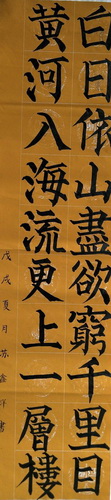 白日依山盡欲窮千里目
黃河入海流更上一層樓
戊戌夏月蘇鑫洋書